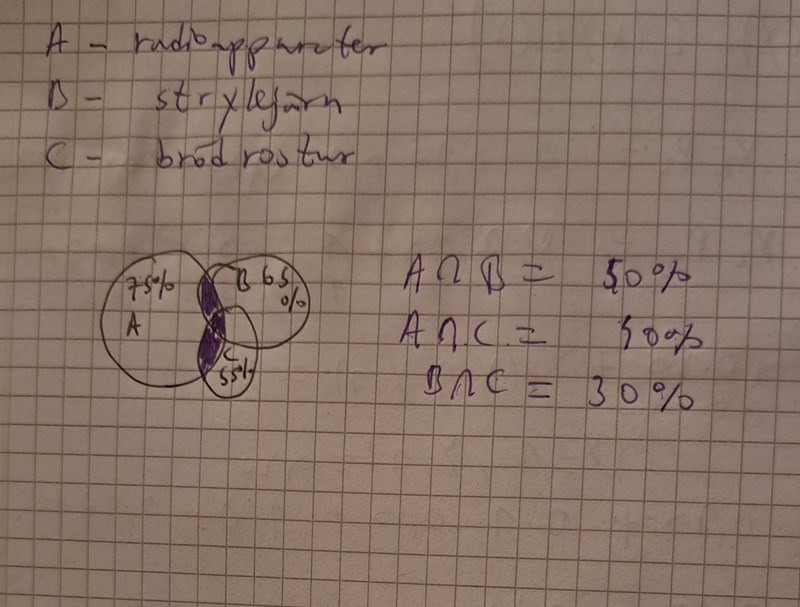 A - radioapparater
B - strykjärn
C - brödrostur
75%
B 65
%
A
C
55%
A ∩ B = 50%
A ∩ C = 40%
B ∩ C = 30%